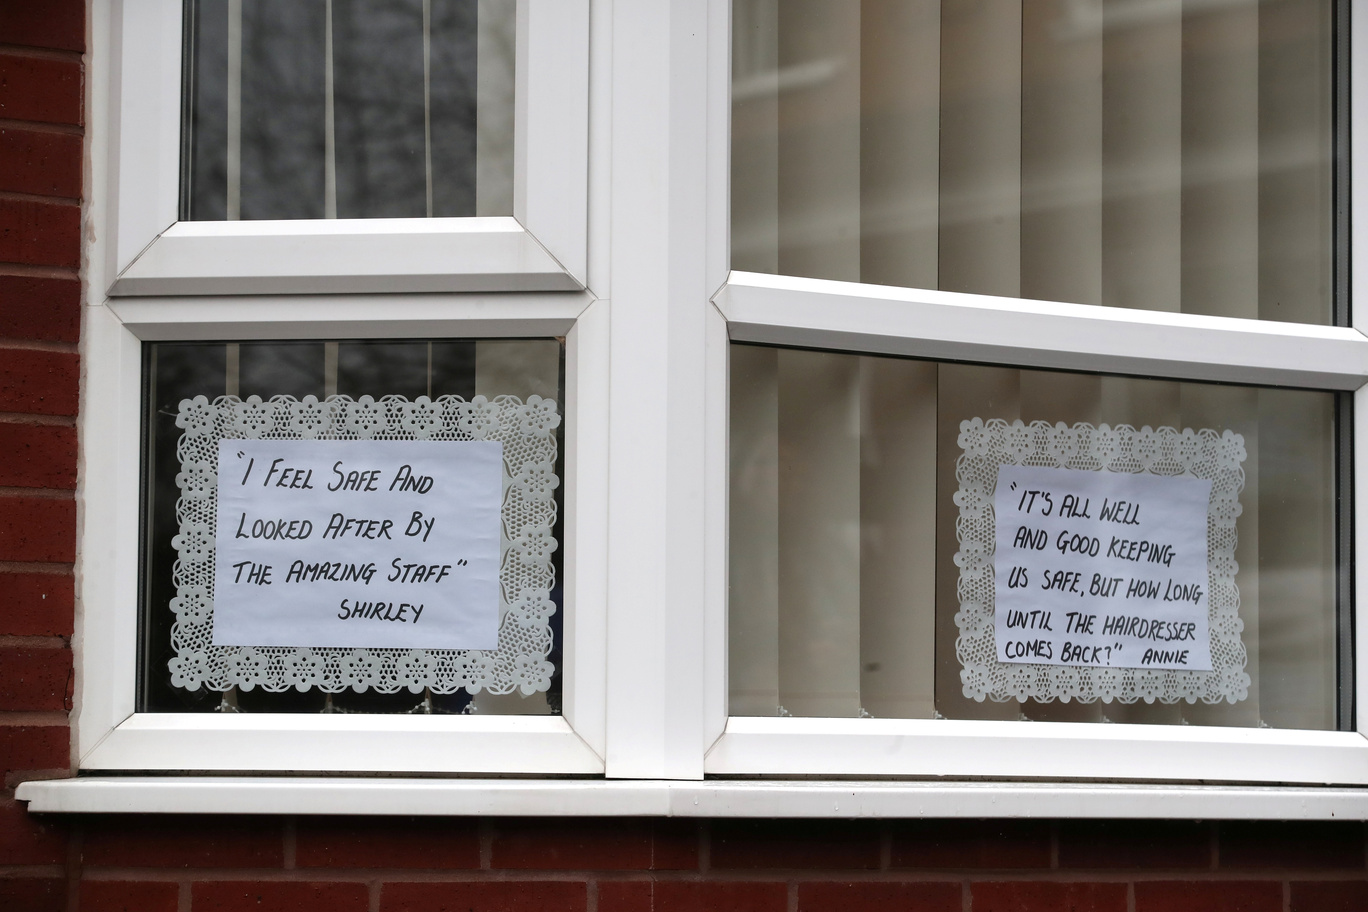 "I FEEL SAFE AND
LOOKED AFTER BY
THE AMAZING STAFF"
SHIRLEY
"IT'S ALL WELL
AND GOOD KEEPING
US SAFE, BUT HOW LONG
UNTIL THE HAIRDRESSER
COMES BACK?" ANNIE